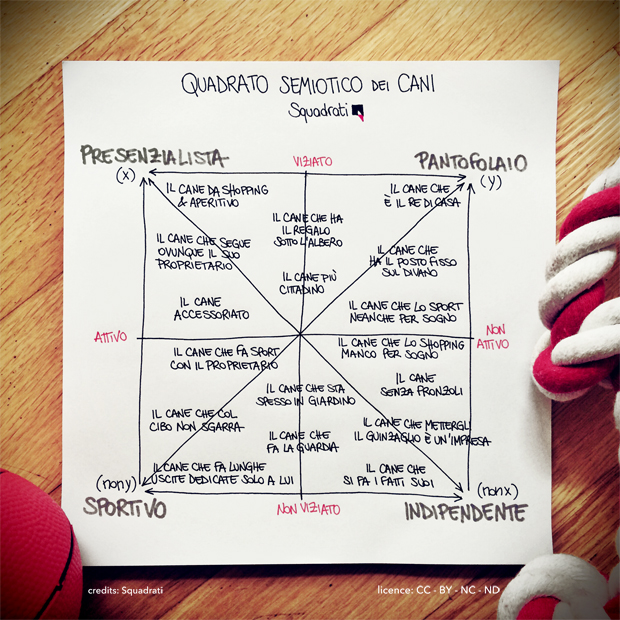 QUADRATO SEMIOTICO DEI CANI
Squadrati
PRESENZIALISTA
VIZIATO
PANTOFOLAIO
(x)
(y)
IL CANE DA SHOPPING
& APERITIVO
IL CANE CHE
È IL RE DI CASA
IL CANE CHE HA
IL REGALO
SOTTO L'ALBERO
IL CANE CHE SEGUE
OVUNQUE IL SUO
PROPRIETARIO
IL CANE CHE
HA IL POSTO FISSO
SUL DIVANO
IL CANE PIÙ
CITTADINO
IL CANE
ACCESSORIATO
IL CANE CHE LO SPORT
NEANCHE PER SOGNO
ATTIVO
NON
ATTIVO
IL CANE CHE FA SPORT
CON IL PROPRIETARIO
IL CANE CHE LO SHOPPING
MANCO PER SOGNO
IL CANE CHE STA
SPESSO IN GIARDINO
IL CANE
SENZA FRONZOLI
IL CANE CHE COL
CIBO NON SGARRA
IL CANE CHE
FA LA GUARDIA
IL CANE CHE METTERGLI
IL GUINZAGLIO È UN'IMPRESA
IL CANE CHE FA LUNGHE
USCITE DEDICATE SOLO A LUI
IL CANE CHE
SI FA I FATTI SUOI
(non y)
(non x)
SPORTIVO
NON VIZIATO
INDIPENDENTE
credits: Squadrati
licence: CC - BY - NC - ND